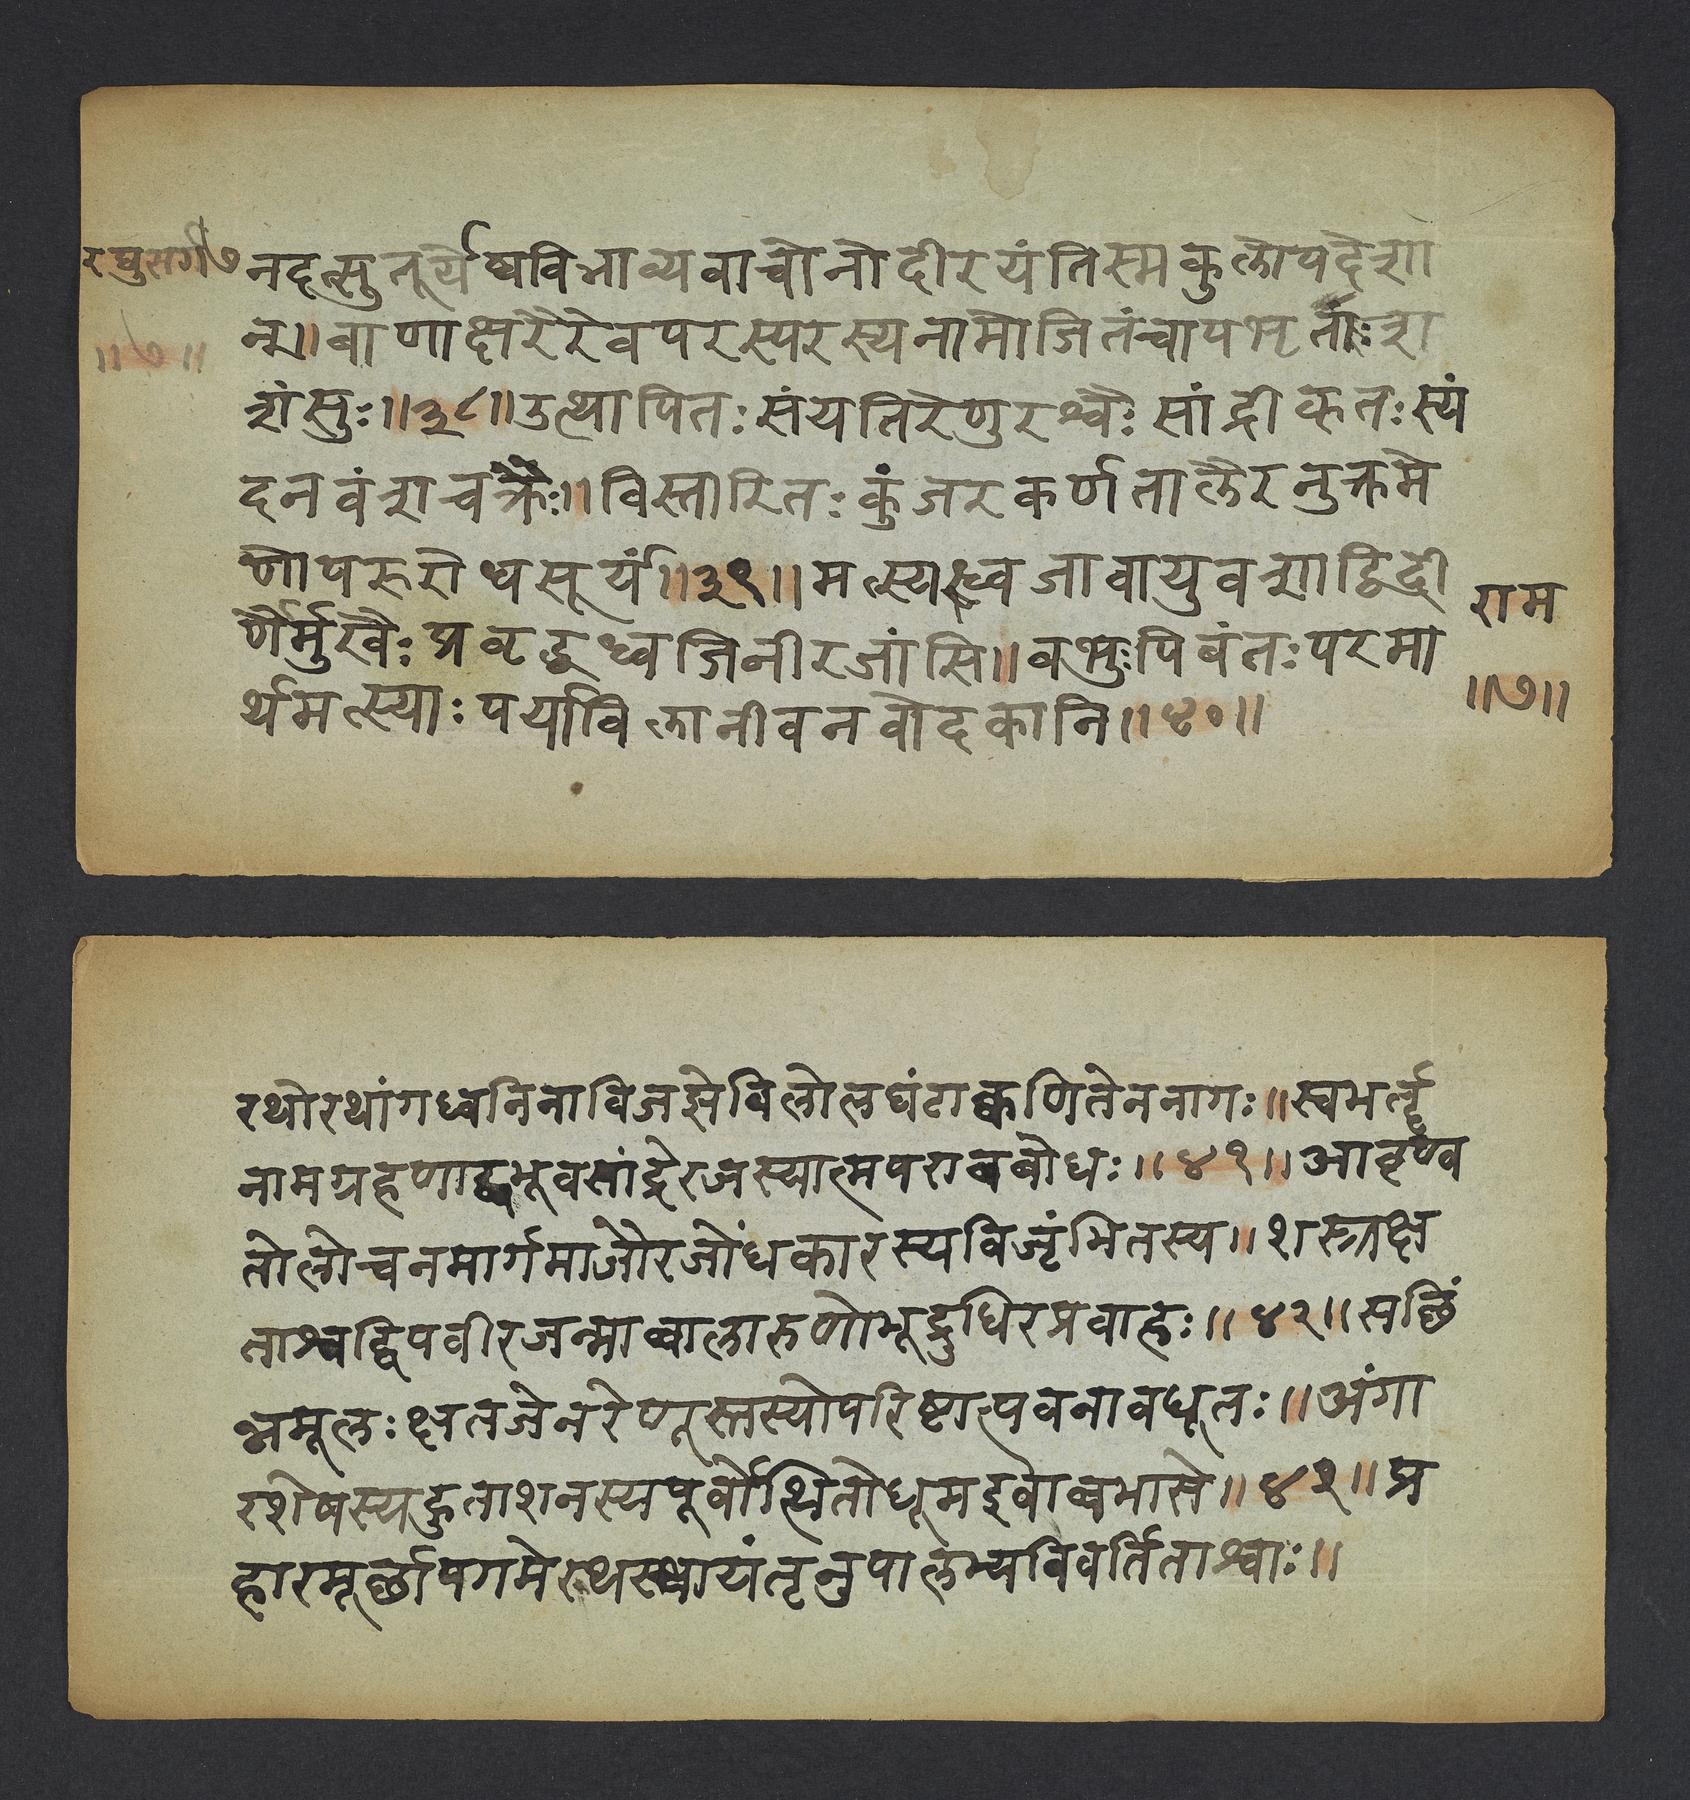 रघुसर्ग७
॥७॥
नदत्सुतूर्येष्वविभाव्यवाचोनोदीरयंतिस्मकुलोपदेशा
न्म॥बाणाक्षरैरेवपरस्परस्यनामोर्जितंचापभृताःश
शंसुः॥३८॥उत्थापितःसंयतिरेणुरश्वैःसांद्रीकृतःस्यं
दनवंशचक्रैः॥विस्तारितःकुंजरकर्णतालैरनुक्रमे
णोपरुरोधसूर्यं॥३९॥मत्स्यध्वजावायुवशाद्विदी
र्णैर्मुखैःप्रवृद्धध्वजिनीरजांसि॥बभुःपिबंतःपरमा
र्थमत्स्याःपर्याविलानीवनवोदकानि॥४०॥
राम
॥७॥
रथोरथांगध्वनिनाविजज्ञेविलोलघंटाक्वणितेननागः॥स्वभर्तृ
नामग्रहणाद्बभूवसांद्रेरजस्यात्मपरावबोधः॥४१॥आवृण्व
तोलोचनमार्गमाजौरजोंधकारस्यविजृंभितस्य॥शस्त्रक्ष
ताश्वद्विपवीरजन्माबालारुणोभूद्रुधिरप्रवाहः॥४२॥सछिं
न्नमूलःक्षतजेनरेणूस्तस्योपरिष्टात्पवनावधूतः॥अंगा
रशेषस्यहुताशनस्यपूर्वोत्थितोधूमइवाबभासे॥४३॥प्र
हारमूर्छापगमेरथस्थायंतॄनुपालभ्यविवर्तिताश्वाः॥